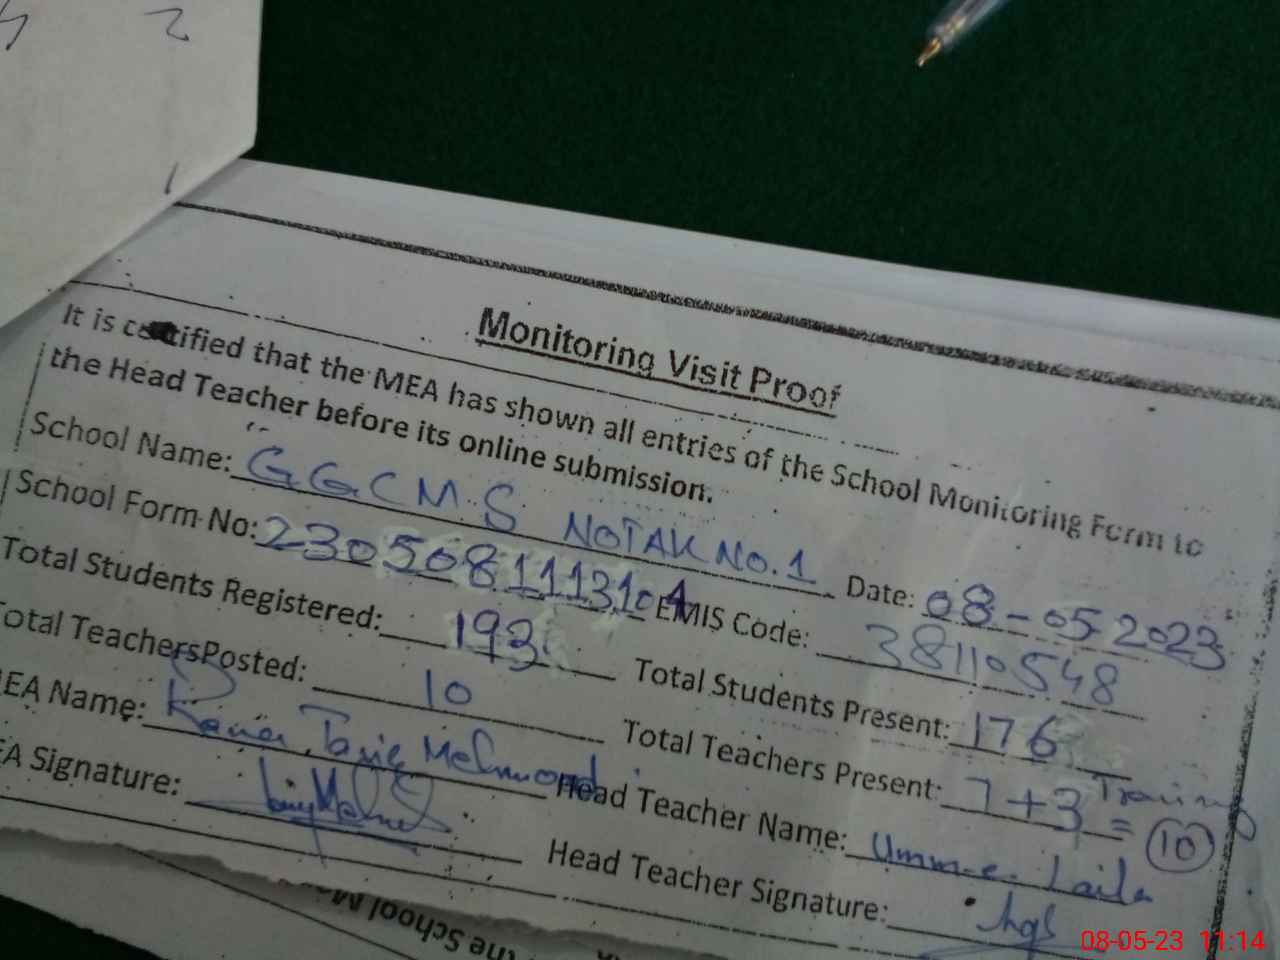 2
Monitoring Visit Proof
It is certified that the MEA has shown all entries of the School Monitoring Form to
the Head Teacher before its online submission.
School Name: GGCM.S NOTAK No.1 Date: 08-05-2023
School Form No: 2305081113104 EMIS Code: 38110548
Total Students Registered: 193 Total Students Present: 176
otal TeachersPosted: 10 Total Teachers Present: 7+3 Training = 10
EA Name: Tariq Mehmood Head Teacher Name: Umm-e-Laila
EA Signature: Head Teacher Signature:
the School M
08-05-23 11:14